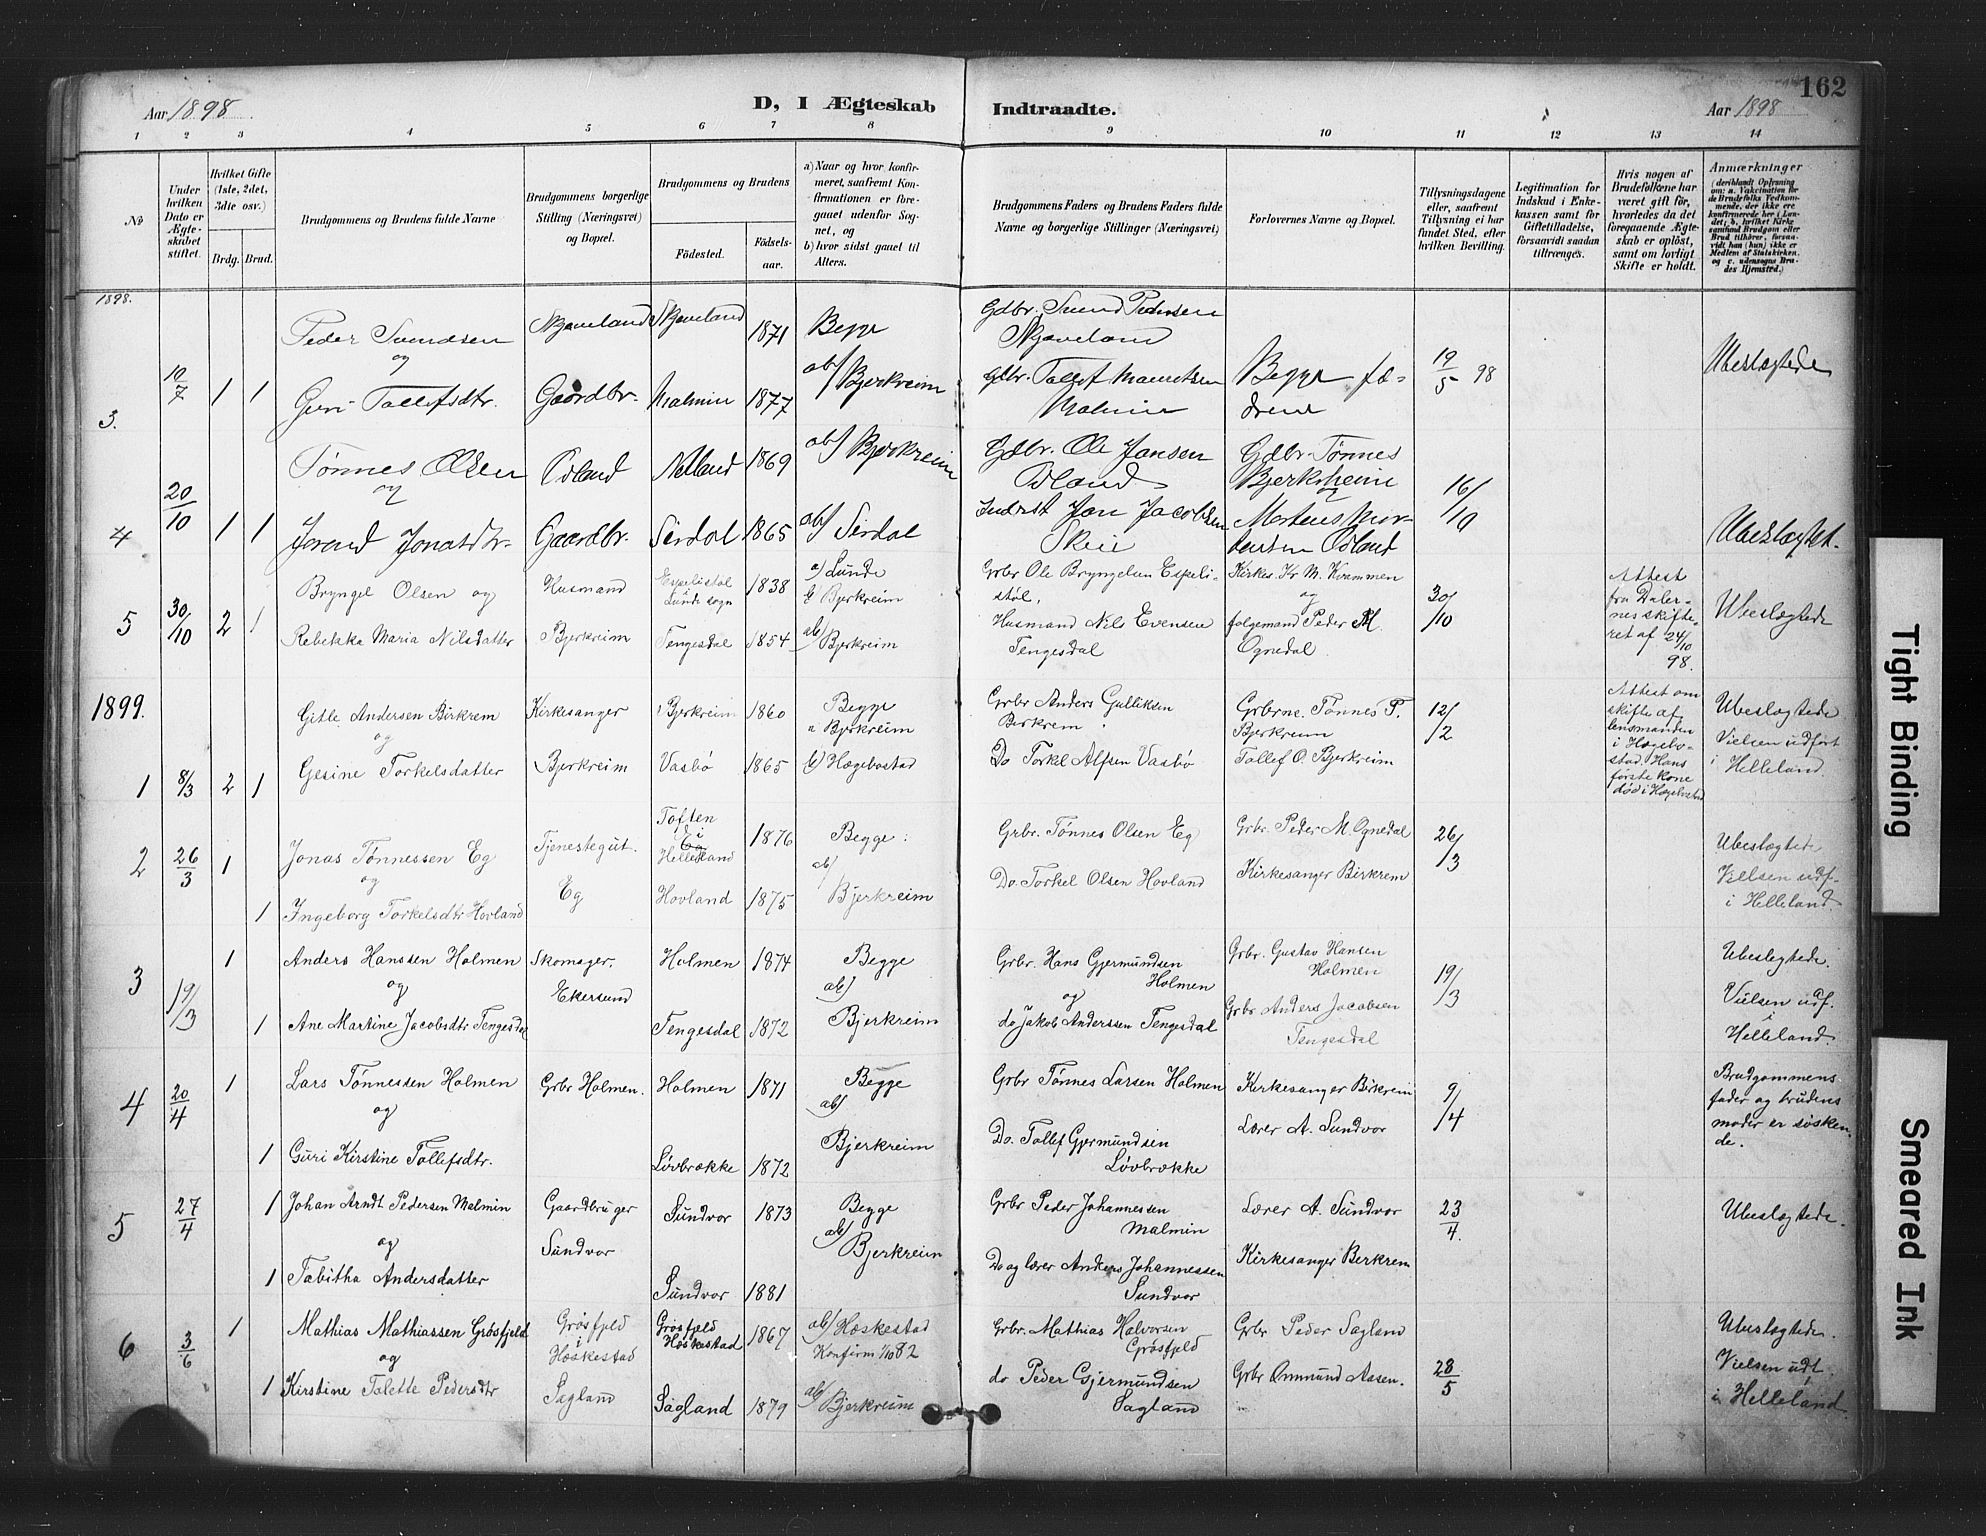 162
Aar 1898.
D, I Ægteskab Indtraadte.
Aar 1898
1 2 3 4 5 6 7 8 9 10 11 12 13 14
No
Under hvilken Dato er Ægteskabet stiftet.
Hvilket Gifte (1ste, 2det, 3die osv.)
Brdg. Brud.
Brudgommens og Brudens fulde Navne
Brudgommens borgerlige Stilling (Næringsvei) og Bopæl.
Brudgommens og Brudens
Fødested.
Fødselsaar.
a) Naar og hvor konfirmeret, saafremt Konfirmationen er foregaaet udenfor Sognet, og
b) hvor sidst gaaet til Alters.
Brudgommens Faders og Brudens Faders fulde Navne og borgerlige Stillinger (Næringsvei)
Forlovernes Navne og Bopæl.
Tillysningsdagene eller, saafremt Tillysning ei har fundet Sted, efter hvilken Bevilling.
Legitimation for Indskud i Enkekassen samt for Giftetilladelse, forsaavidt saadan tiltrænges.
Hvis nogen af Brudefolkene har været gift før, hvorledes da det foregaaende Ægteskab er opløst, samt om lovligt Skifte er holdt.
Anmærkninger
(deriblandt Oplysning om: a. Vakcination for de Brudefolks Vedkommende, der ikke ere konfirmerede her i Landet; b. hvilket Kirkesamfund Brudgom eller Brud tilhører, forsaavidt han (hun) ikke er Medlem af Statskirken, og c. udensogns Brudes Hjemsted.)
1898.
3. 10/7 1 1
Peder Svendsen
og
Guri Tollefsdtr.
Skjæveland
Gaardbr.
Skjæveland 1871
Malmin 1877
Begge
ab) Bjerkreim
Gdbr. Svend Pedersen
Skjæveland
Gdbr. Tollef Mauritsen
Malmin
Begge fædrene
19/5 98
Ubeslægtede
4 20/10 1 1
Tønnes Olsen
og
Jorend Jonasdtr.
Odland
Gaardbr.
Netland 1869
Sirdal 1865
ab) Bjerkreim
ab) Sirdal
Gdbr. Ole Jansen
Odland
Inderst Jon Jacobsen
Skeie
Gdbr. Tønnes
Bjerkrheim
og
Mortens Mortensen Odland
16/10
Ubeslægtet.
5 30/10 2 1
Bryngel Olsen og
Rebekka Maria Nilsdatter
Husmand
Bjerkreim
Espelistøl
i
Lunde sogn 1838
Tengesdal 1854
a) Lunde
b Bjerkreim
ab) Bjerkreim
Grbr Ole Bryngelsen Espelistøl,
Husmand Nils Evensen
Tengesdal
Kirkes. Kr M. Kvammen
og
følgemand Peder M.
Ognedal.
30/10
Attest
fra Dalernes skifteret af 24/10
98.
Ubeslægtede
1899.
1 8/3 2 1
Gitle Andersen Birkrem
og
Gesine Torkelsdatter
Kirkesanger
Bjerkreim
Bjerkreim 1860
Vasbø 1865
Begge
a Bjerkreim
b) Hægebostad
Grbr Anders Gulliksen
Berkrem
Do Torkel Alfsen Vasbø
Grberne. Tønnes P.
Bjerkreim
Tollef O. Bjerkreim
12/2
Attest om
skifte af
lensmanden
i Hægebostad. Hans
første kone
død i Hægebostad
Ubeslægtede
Vielsen udført
i Helleland.
2 26/3 1
1
Jonas Tønnessen Eg
og
Ingeborg Torkelsdtr Hovland
Tjenestegut.
Eg
Toften
i
Helleland 1876
Hovland 1875
Begge:
ab)
Bjerkreim
Grbr. Tønnes Olsen Eg
Do. Torkel Olsen Hovland
Grbr. Peder M. Ognedal
Kirkesanger Birkrem
26/3
Ubeslægtede
Vielsen udf.
i Helleland.
3 19/3 1
1
Anders Hanssen Holmen
og
Ane Martine Jacobsdtr Tengesdal
Skomager.
Ekersund
Holmen 1874
Tengesdal 1872
Begge
ab)
Bjerkreim
Grbr. Hans Gjermundsen
Holmen
og
do Jakob Anderssen Tengesdal
Grbr. Gustav Hansen
Holmen
Grbr Anders Jacobsen
Tengesdal
19/3
Ubeslægtede.
Vielsen udf.
i
Helleland.
4 20/4 1
1
Lars Tønnessen Holmen
og
Guri Kirstine Tollefsdtr.
Grbr Holmen.
Holmen 1871
Løvbrække 1872
Begge
ab)
Bjerkreim
Grbr Tønnes Larsen Holmen
Do. Tollef Gjermundsen
Løvbrække
Kirkesanger Birkreim
Lærer A. Sundvor
9/4
Brudgommens
fader og brudens
moder er søskende.
5 27/4 1
1
Johan Arndt Pedersen Malmin
og
Tabitha Andersdatter
Gaardbruger
Sundvor
Sundvor 1873
Sundvor 1881
Begge
ab)
Bjerkreim
Grbr Peder Johannessen
Malmin
Do og lærer Anders Johannessen
Sundvor
Lærer A. Sundvor
Kirkesanger Berkrem
23/4.
Ubeslægtede.
6 3/6 1
1
Mathias Mathiassen Grøsfjeld
og
Kirstine Talette Pedersdtr
Grøsfjeld
i
Hæskestad
Sagland
Grøsfjeld
Hæskestad 1867
Sagland 1879
ab) Hæskestad
Konfirm 1/10 82
ab) Bjerkreim
Grbr. Mathias Halvorsen
Grøsfjeld
do Peder Gjermundsen
Sagland
Grbr Peder Sagland
Grbr Ommund Aasen.
28/5
Ubeslægtede.
Vielsen udf.
i Helleland.
Tight Binding
Smeared Ink